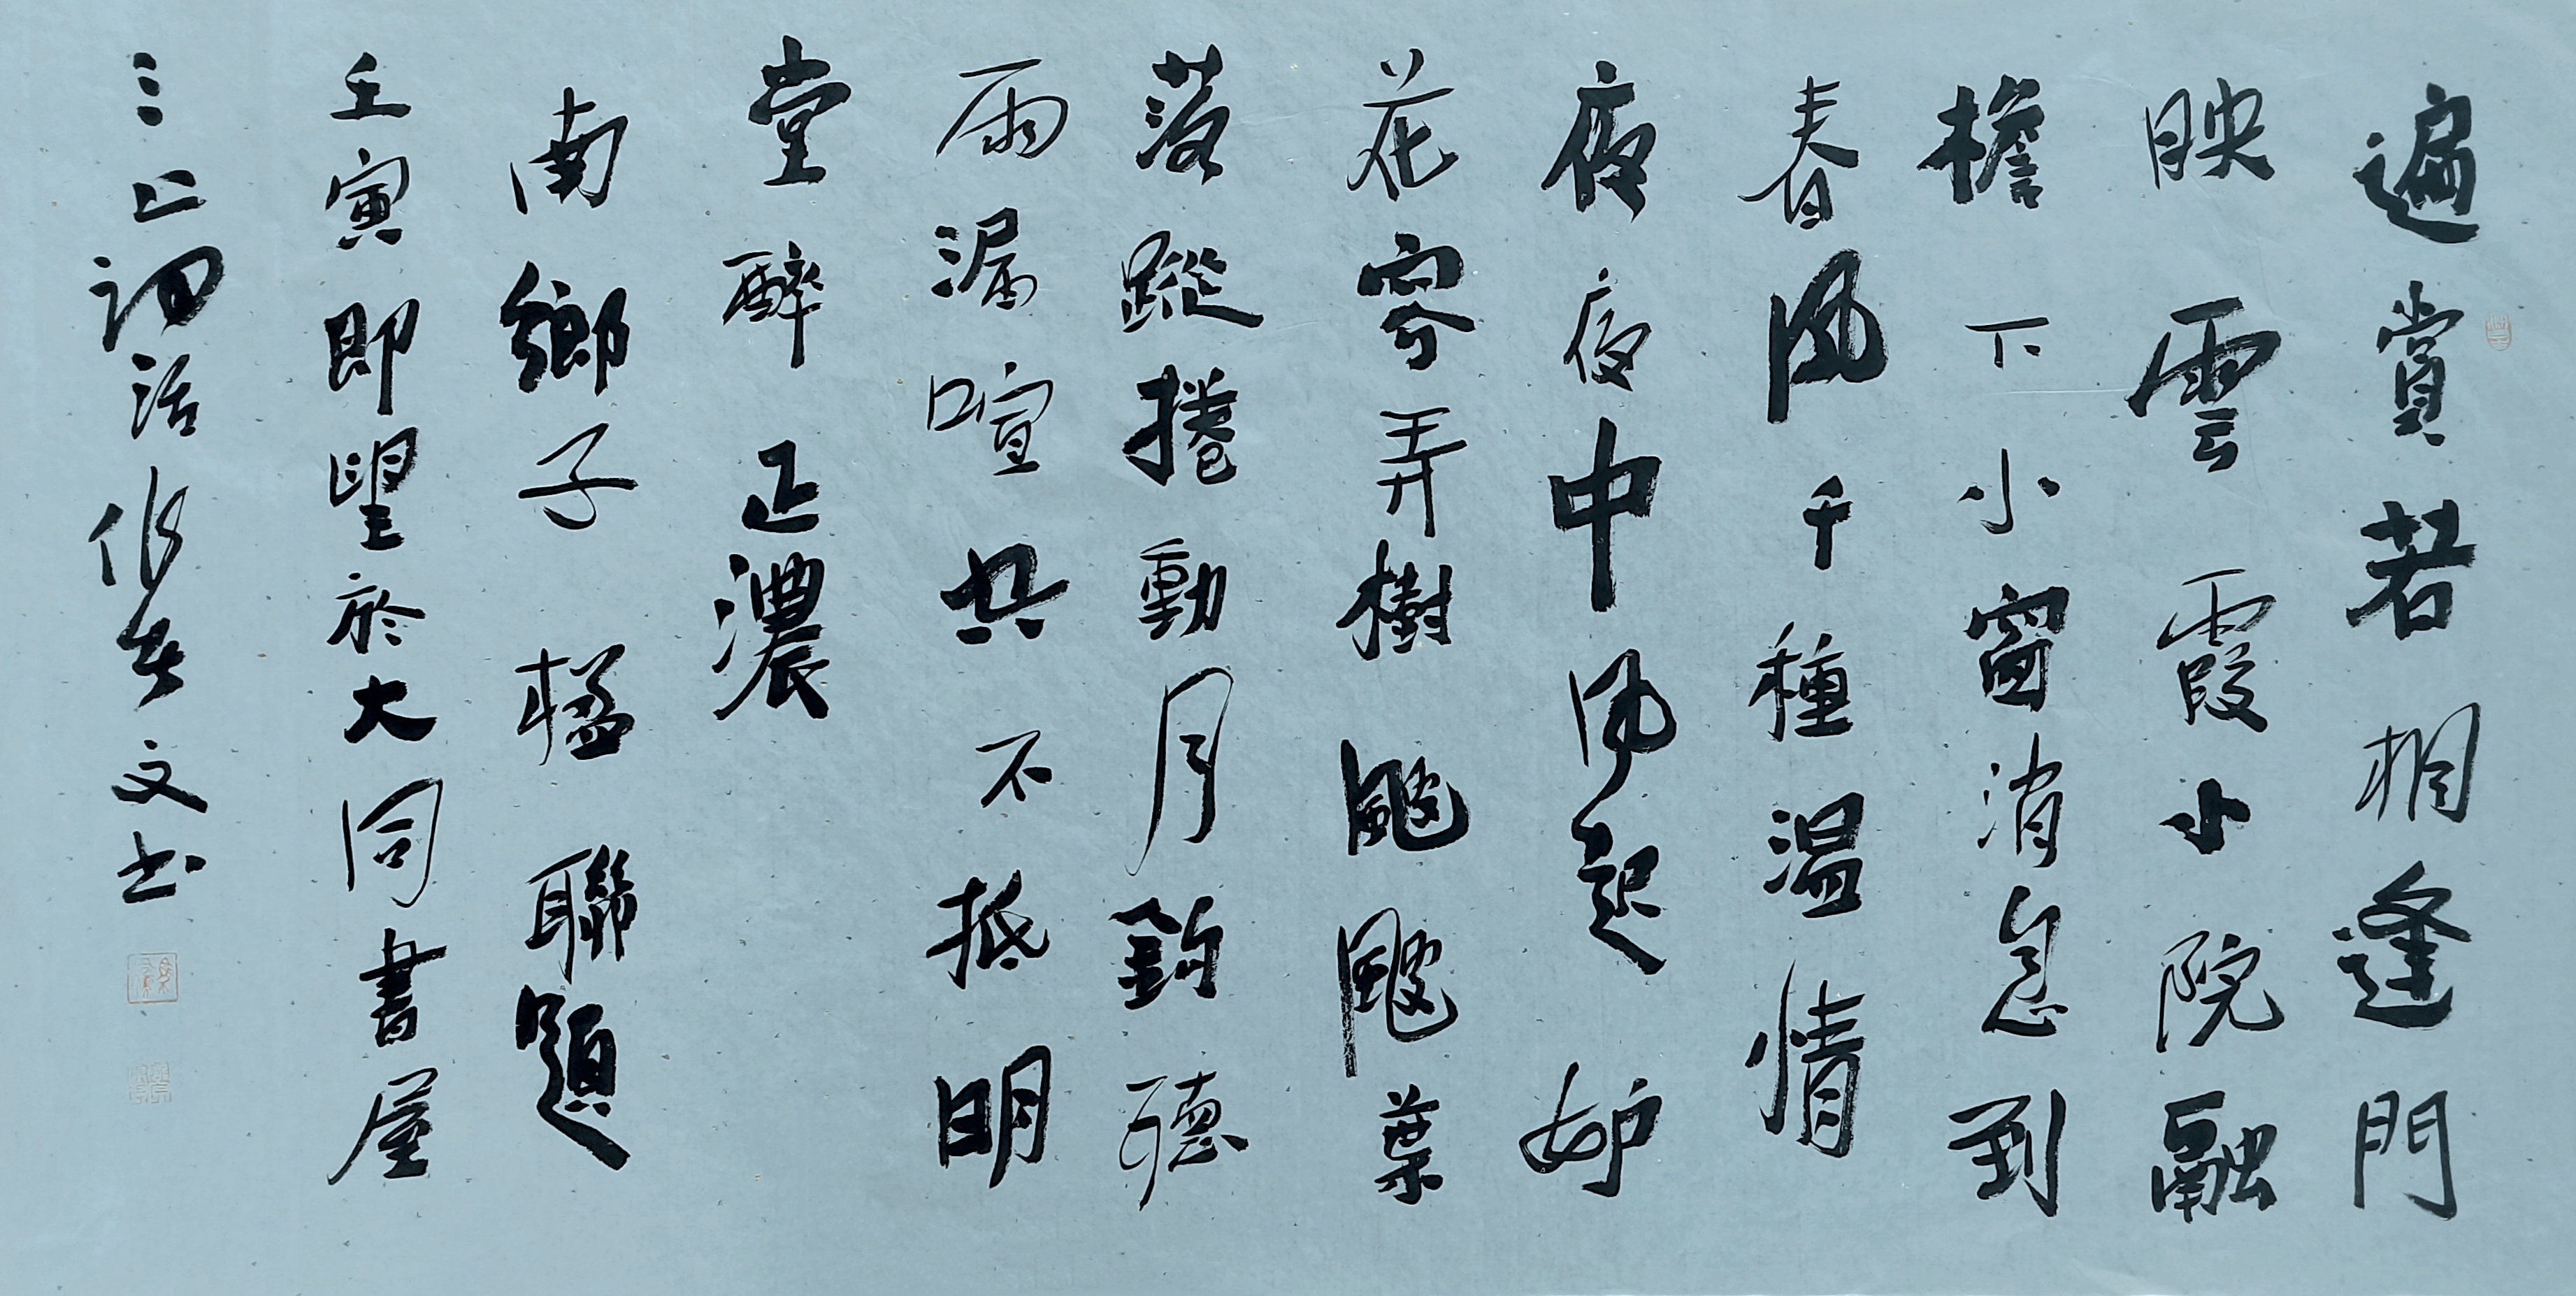 遍賞若相逢門
映雲霞小院融
檐下小窗消息到
春風千種温情
夜夜中風起妒
花容弄樹颭颼葉
落蹤捲動月鈎聽
雨漏喧共不抵明
堂醉正濃
南鄉子楹聯題
壬寅即望於大同書屋
文书